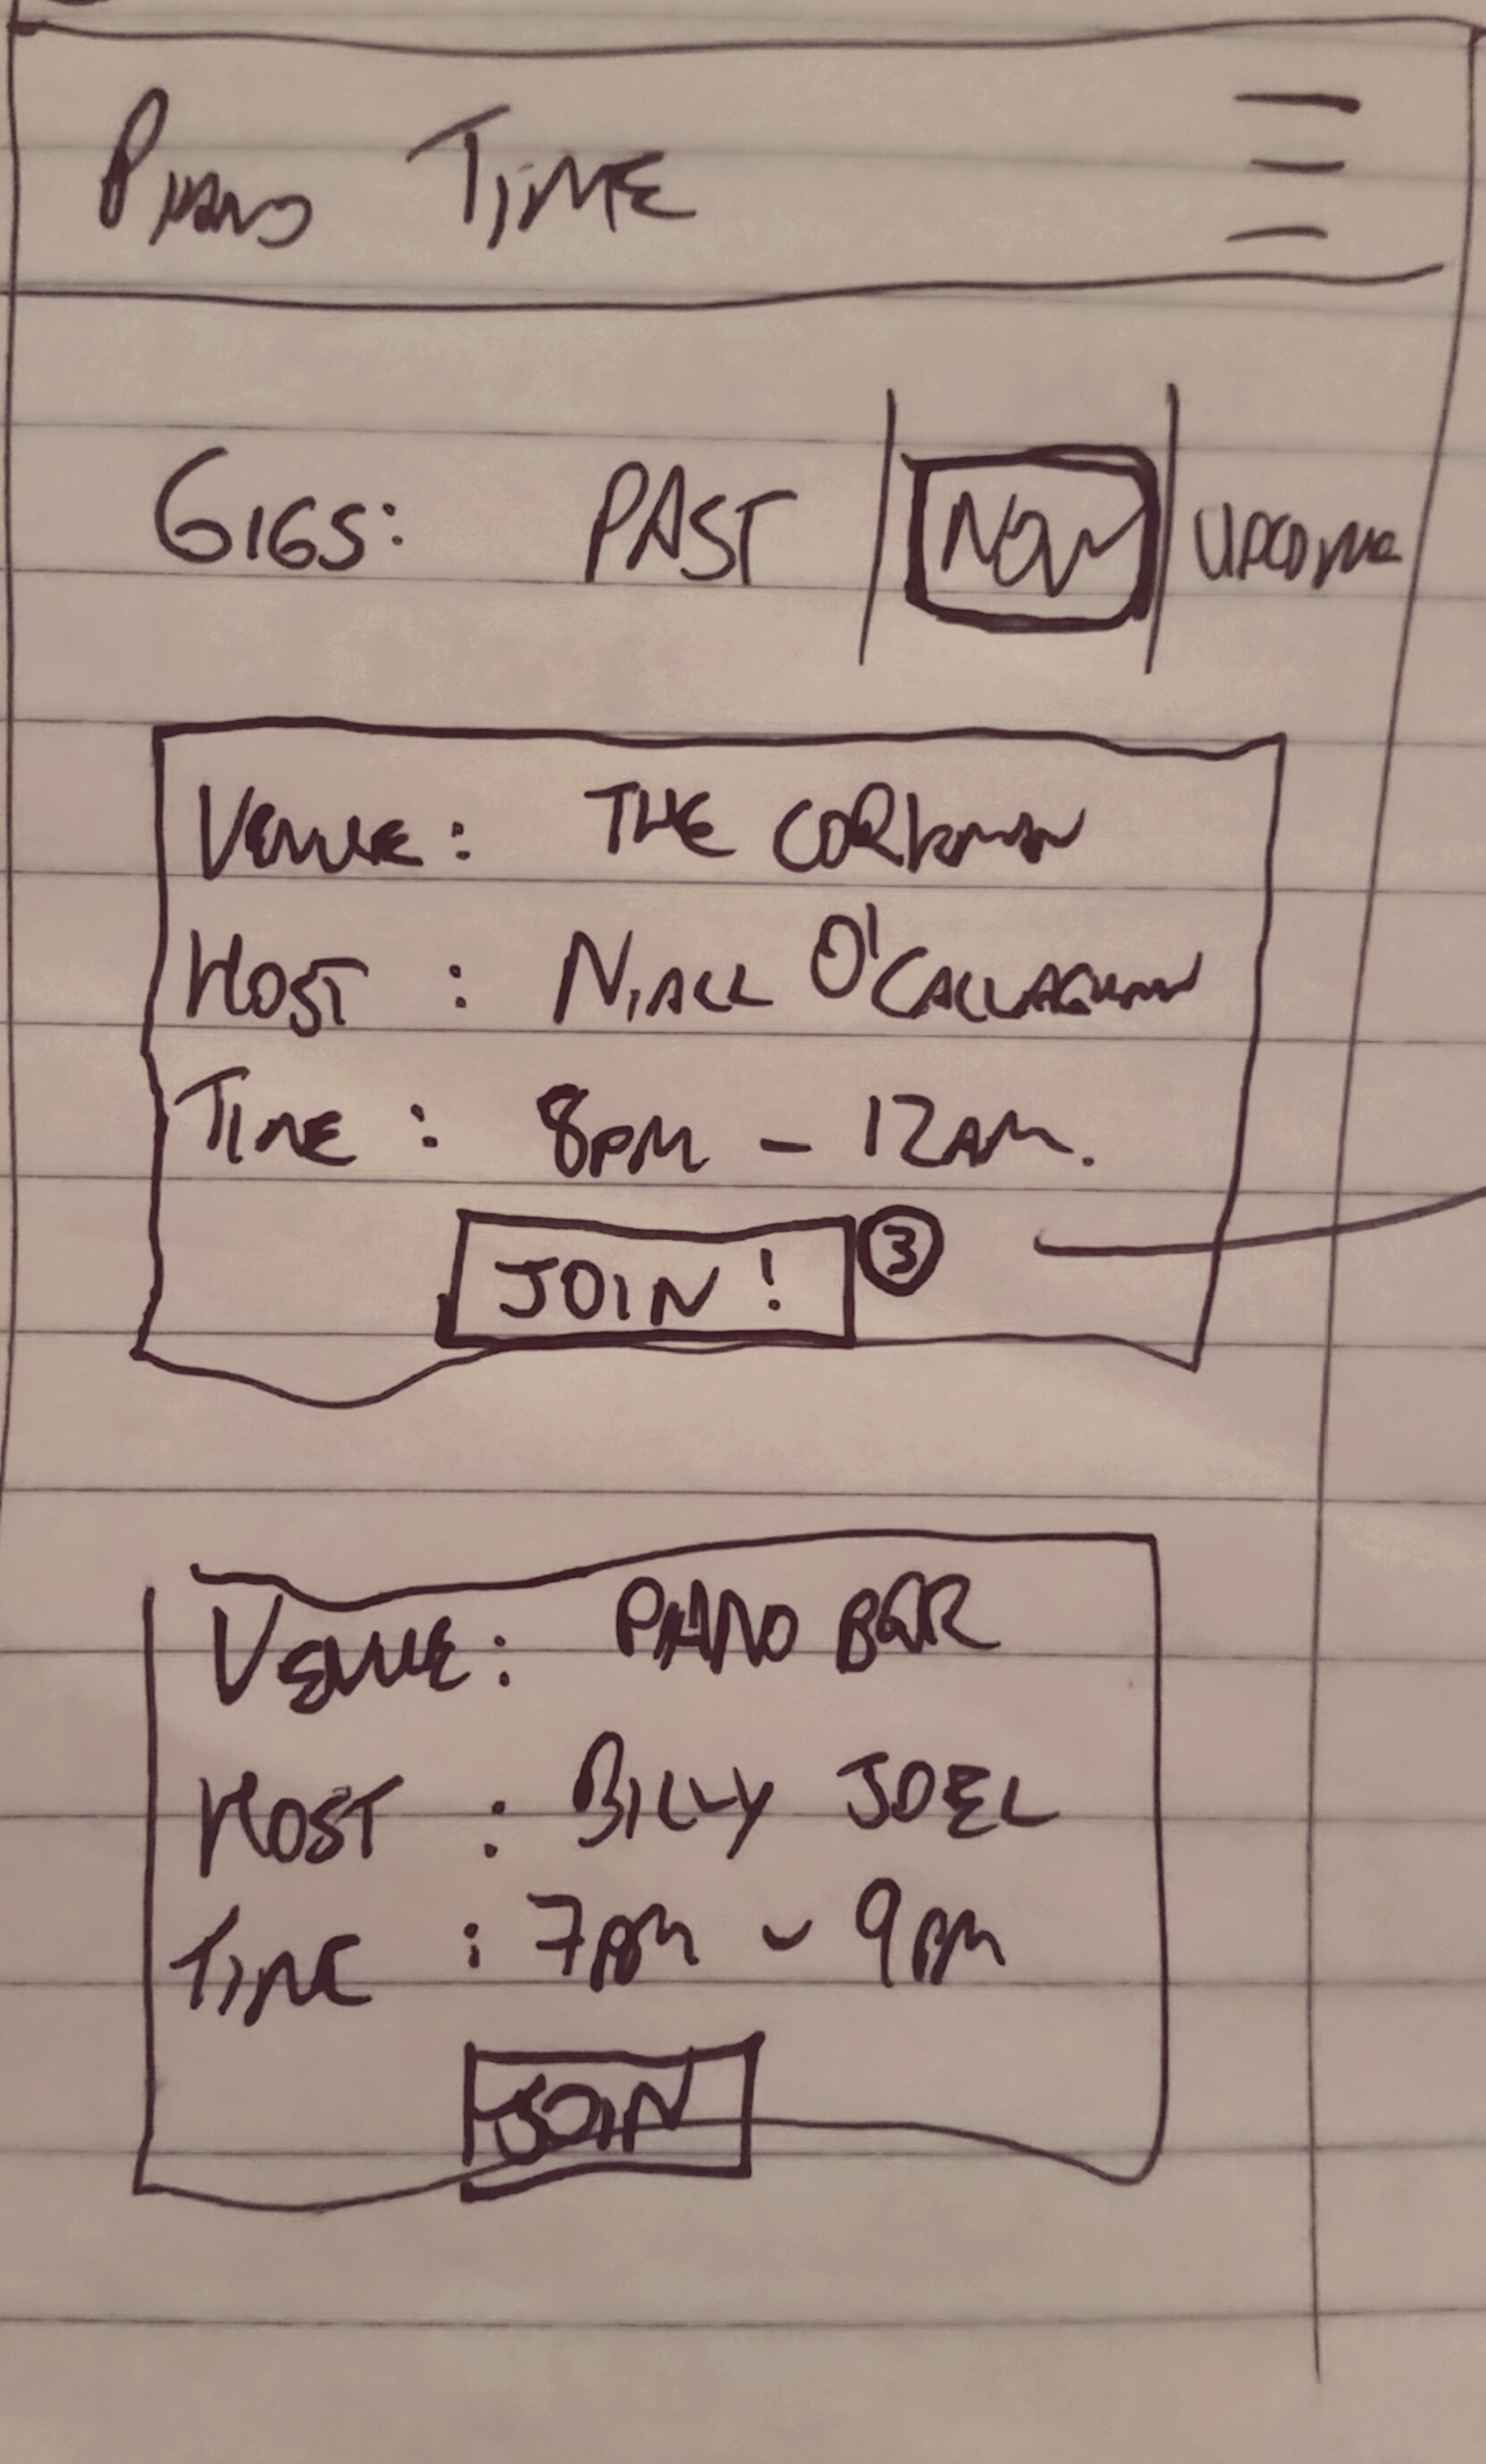 PIANO TIME
GIGS: PAST NOW UPCOMING
VENUE: THE CORKMAN
HOST : NIALL O'CALLAGHAN
TIME : 8PM - 12AM.
JOIN! 3
VENUE: PIANO BAR
HOST : BILLY JOEL
TIME : 7PM - 9PM
JOIN